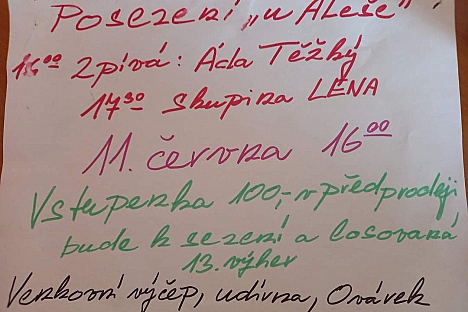 Posezení „u Aleše"
16⁰⁰ Zpívá: Áda Těžký
17³⁰ skupina LENA
11. června 16⁰⁰
Vstupenka 100,- v předprodeji
bude k sezení a losovaná
13. výher
Venkovní výčep, udírna, Ovárek